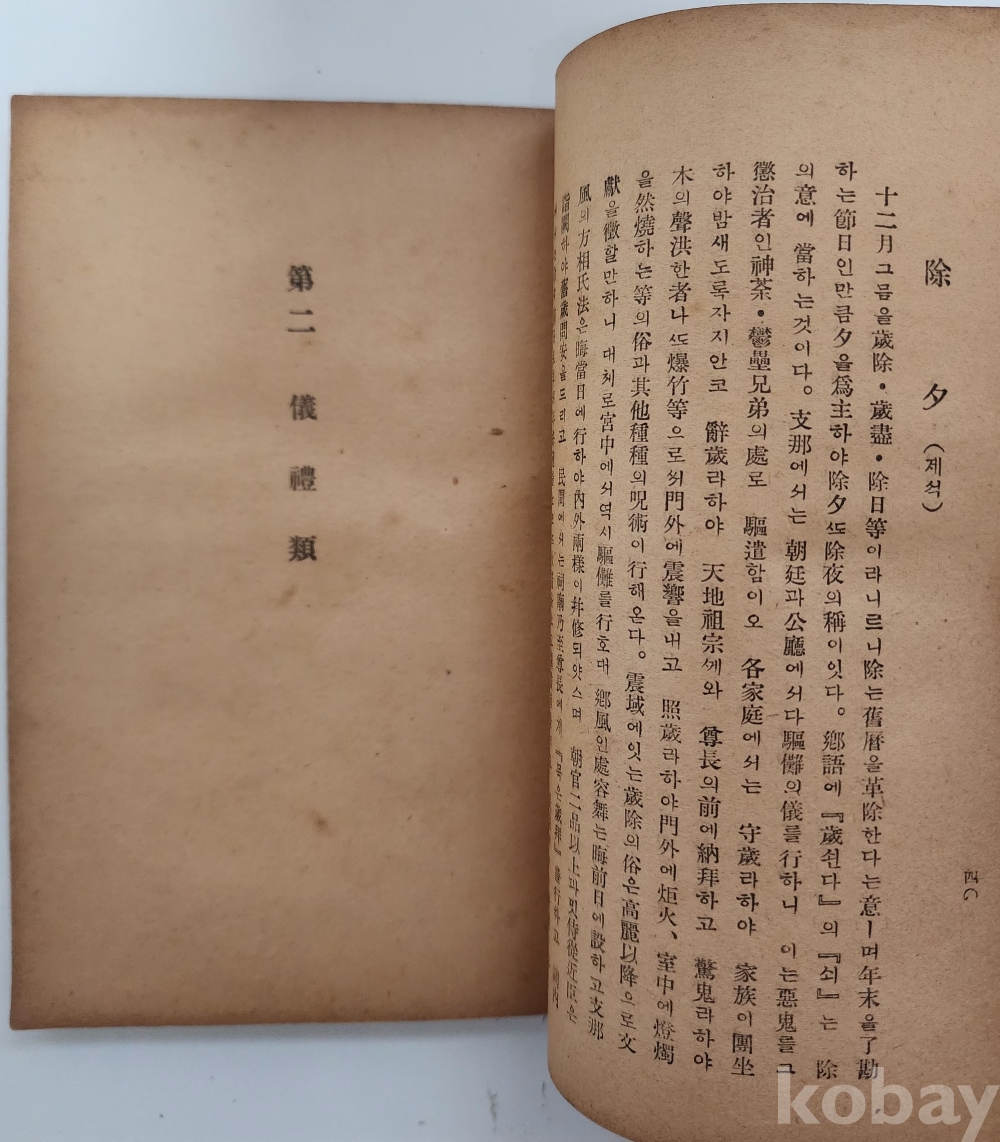 除 夕 (제석)
十二月그믐을歲除·歲盡·除日等이라니르니除는舊曆을革除한다는意ㅣ며年末을了勘
하는節日인만큼夕을爲主하야除夕ᄯᅩ除夜의稱이잇다。鄕語에『歲쇤다』의『쇠』는 除
의意에 當하는것이다。支那에서는 朝廷과公廳에서다驅儺의儀를行하니 이는惡鬼를그
懲治者인神荼·鬱壘兄弟의處로 驅遣함이오 各家庭에서는 守歲라하야 家族이團坐
하야밤새도록자지안코 辭歲라하야 天地祖宗ᄭᅦ와 尊長의前에納拜하고 驚鬼라하야
木의聲洪한者나ᄯᅩ爆竹等으로써門外에震響을내고 照歲라하야門外에炬火、室中에燈燭
을然燒하는等의俗과其他種種의呪術이行해온다。震域에잇는歲除의俗은高麗以降으로文
獻을徵할만하니 대체로宮中에서역시驅儺를行호대 鄕風인處容舞는晦前日에設하고支那
風의方相氏法은晦當日에行하야內外兩樣이幷修되얏스며 朝官二品以上과밋侍從近臣은
詣闕하야舊歲問安을드리고 民間에서는祠廟乃至尊長에게『묵은歲拜』를行하고
四〇
第二 儀禮類
kobay